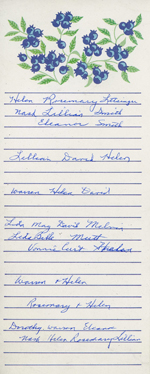 Helen Rosemary
Nash Lillian Smith
Eleanor Smith
Lillian David Helen
Warren Helen David
Lida May David Melvin
Lida Belle Mutt
Vonnie Curt
Warren & Helen
Rosemary & Helen
Dorothy Warren Eleanor
Nash Helen Rosemary Lillian